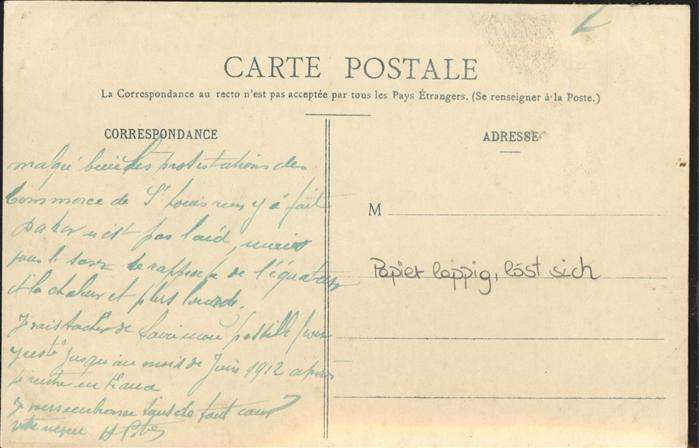 CARTE POSTALE
La Correspondance au recto n'est pas acceptée par tous les Pays Étrangers. (Se renseigner à la Poste.)
CORRESPONDANCE
malgré les protestations des
Commerce de St Louis rien y à fait
Dakar n'est pas laid, mais
vous le savez se rapproche de l'équateur
et la chaleur et plus lourde.
de faire mon possible pour
jusqu'au mois de Juin 1912 après
je rentre en
Je vous embrasse tous de tout cœur
votre neveu
ADRESSE
M
Papier lappig, löst sich